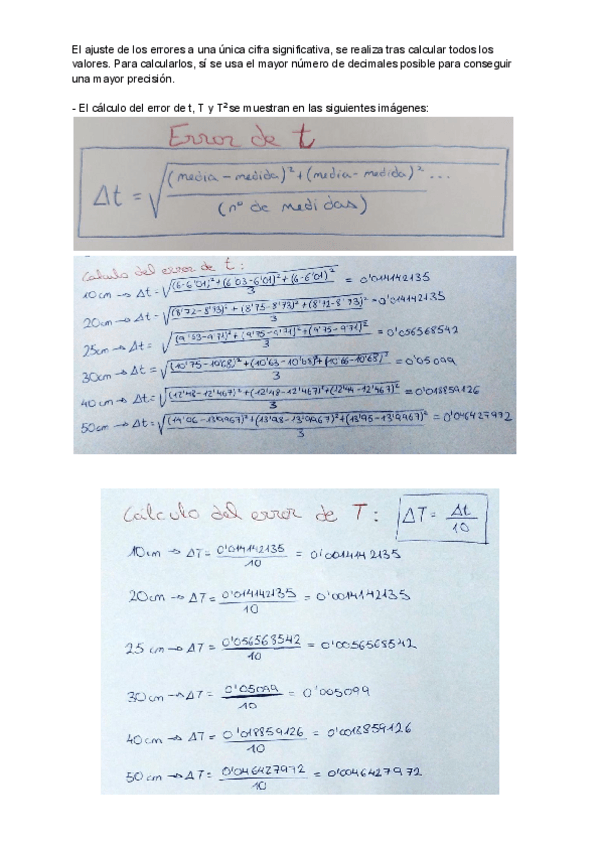 El ajuste de los errores a una única cifra significativa, se realiza tras calcular todos los
valores. Para calcularlos, sí se usa el mayor número de decimales posible para conseguir
una mayor precisión.
- El cálculo del error de t, T y T² se muestran en las siguientes imágenes:
Error de t
Δt = √((media - medida)² + (media - medida)² ... / (nº de medidas))
Calculo del error de t:
10cm → Δt = √((6-6'01)²+(6'03-6'01)²+(6-6'01)² / 3) = 0'014142135
20cm → Δt = √((8'72-8'73)²+(8'75-8'73)²+(8'72-8'73)² / 3) = 0'014142135
25cm → Δt = √((9'63-9'71)²+(9'75-9'71)²+(9'75-9'71)² / 3) = 0'056568542
30cm → Δt = √((10'75-10'68)²+(10'63-10'68)²+(10'66-10'68)² / 3) = 0'05099
40cm → Δt = √((12'48-12'467)²+(12'48-12'467)²+(12'44-12'467)² / 3) = 0'018859126
50cm → Δt = √((14'06-13'9967)²+(13'98-13'9967)²+(13'95-13'9967)² / 3) = 0'046427972
Cálculo del error de T: ΔT = Δt / 10
10cm → ΔT = 0'014142135 / 10 = 0'0014142135
20cm → ΔT = 0'014142135 / 10 = 0'0014142135
25 cm → ΔT = 0'056568542 / 10 = 0'0056568542
30cm → ΔT = 0'05099 / 10 = 0'005099
40cm → ΔT = 0'018859126 / 10 = 0'0018859126
50cm → ΔT = 0'046427972 / 10 = 0'0046427972